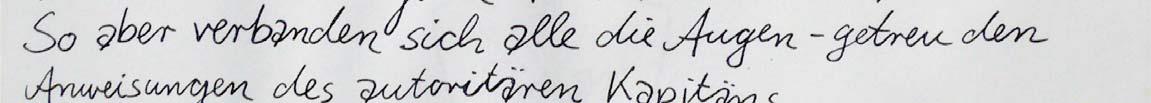 So aber verbanden sich alle die Augen - getreu den
Anweisungen des autoritären Kapitäns